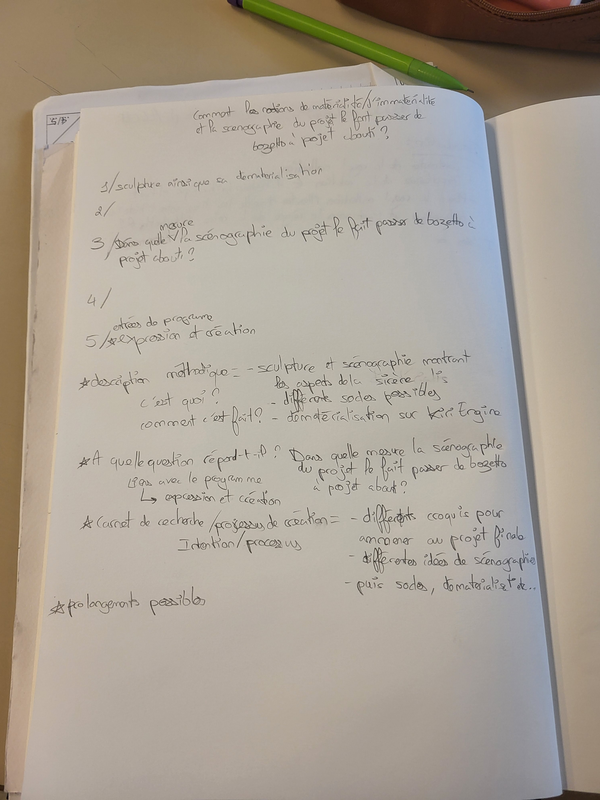 Comment les notions de matérialité/l'immatérialité
et la scénographie du projet le font passer de
bozetto à projet abouti ?
1/ sculpture ainsi que sa dematerialisation
2/
mesure
3/ Dans quelle V la scénographie du projet le fait passer de bozetto à
projet abouti ?
4/
entrées de programme
5/ expression et création
☆ description méthodique = - sculpture et scénographie montrant
les aspects de la sirène lis
c'est quoi ? - différents socles possibles
comment c'est fait ? - dématérialisation sur Kiri Engine
☆ A quelle question répond-t-il ? Dans quelle mesure la scénographie
du projet le fait passer de bozetto
Liens avec le programme à projet abouti ?
↳ expression et création
☆ Carnet de recherche / processus de création = - différents croquis pour
Intention / processus ammener au projet finale
- différentes idées de scénographie
- puis socles, domaterialisat° de...
☆ prolongements possibles
5/5